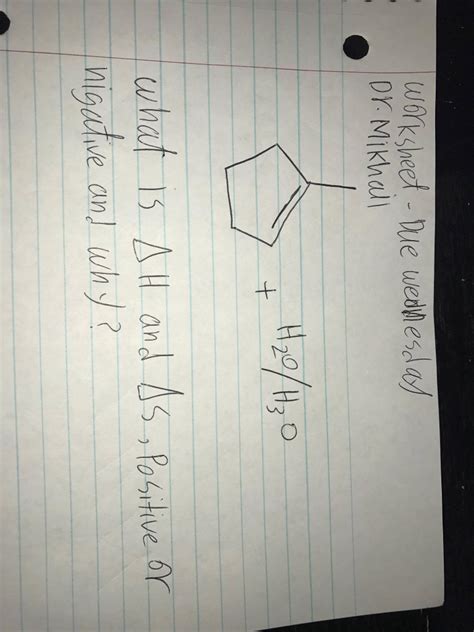 Worksheet - Due wednesday
Dr. Mikhail
+ H2O/H3O
what is ΔH and ΔS, Positive or
nigative and why?